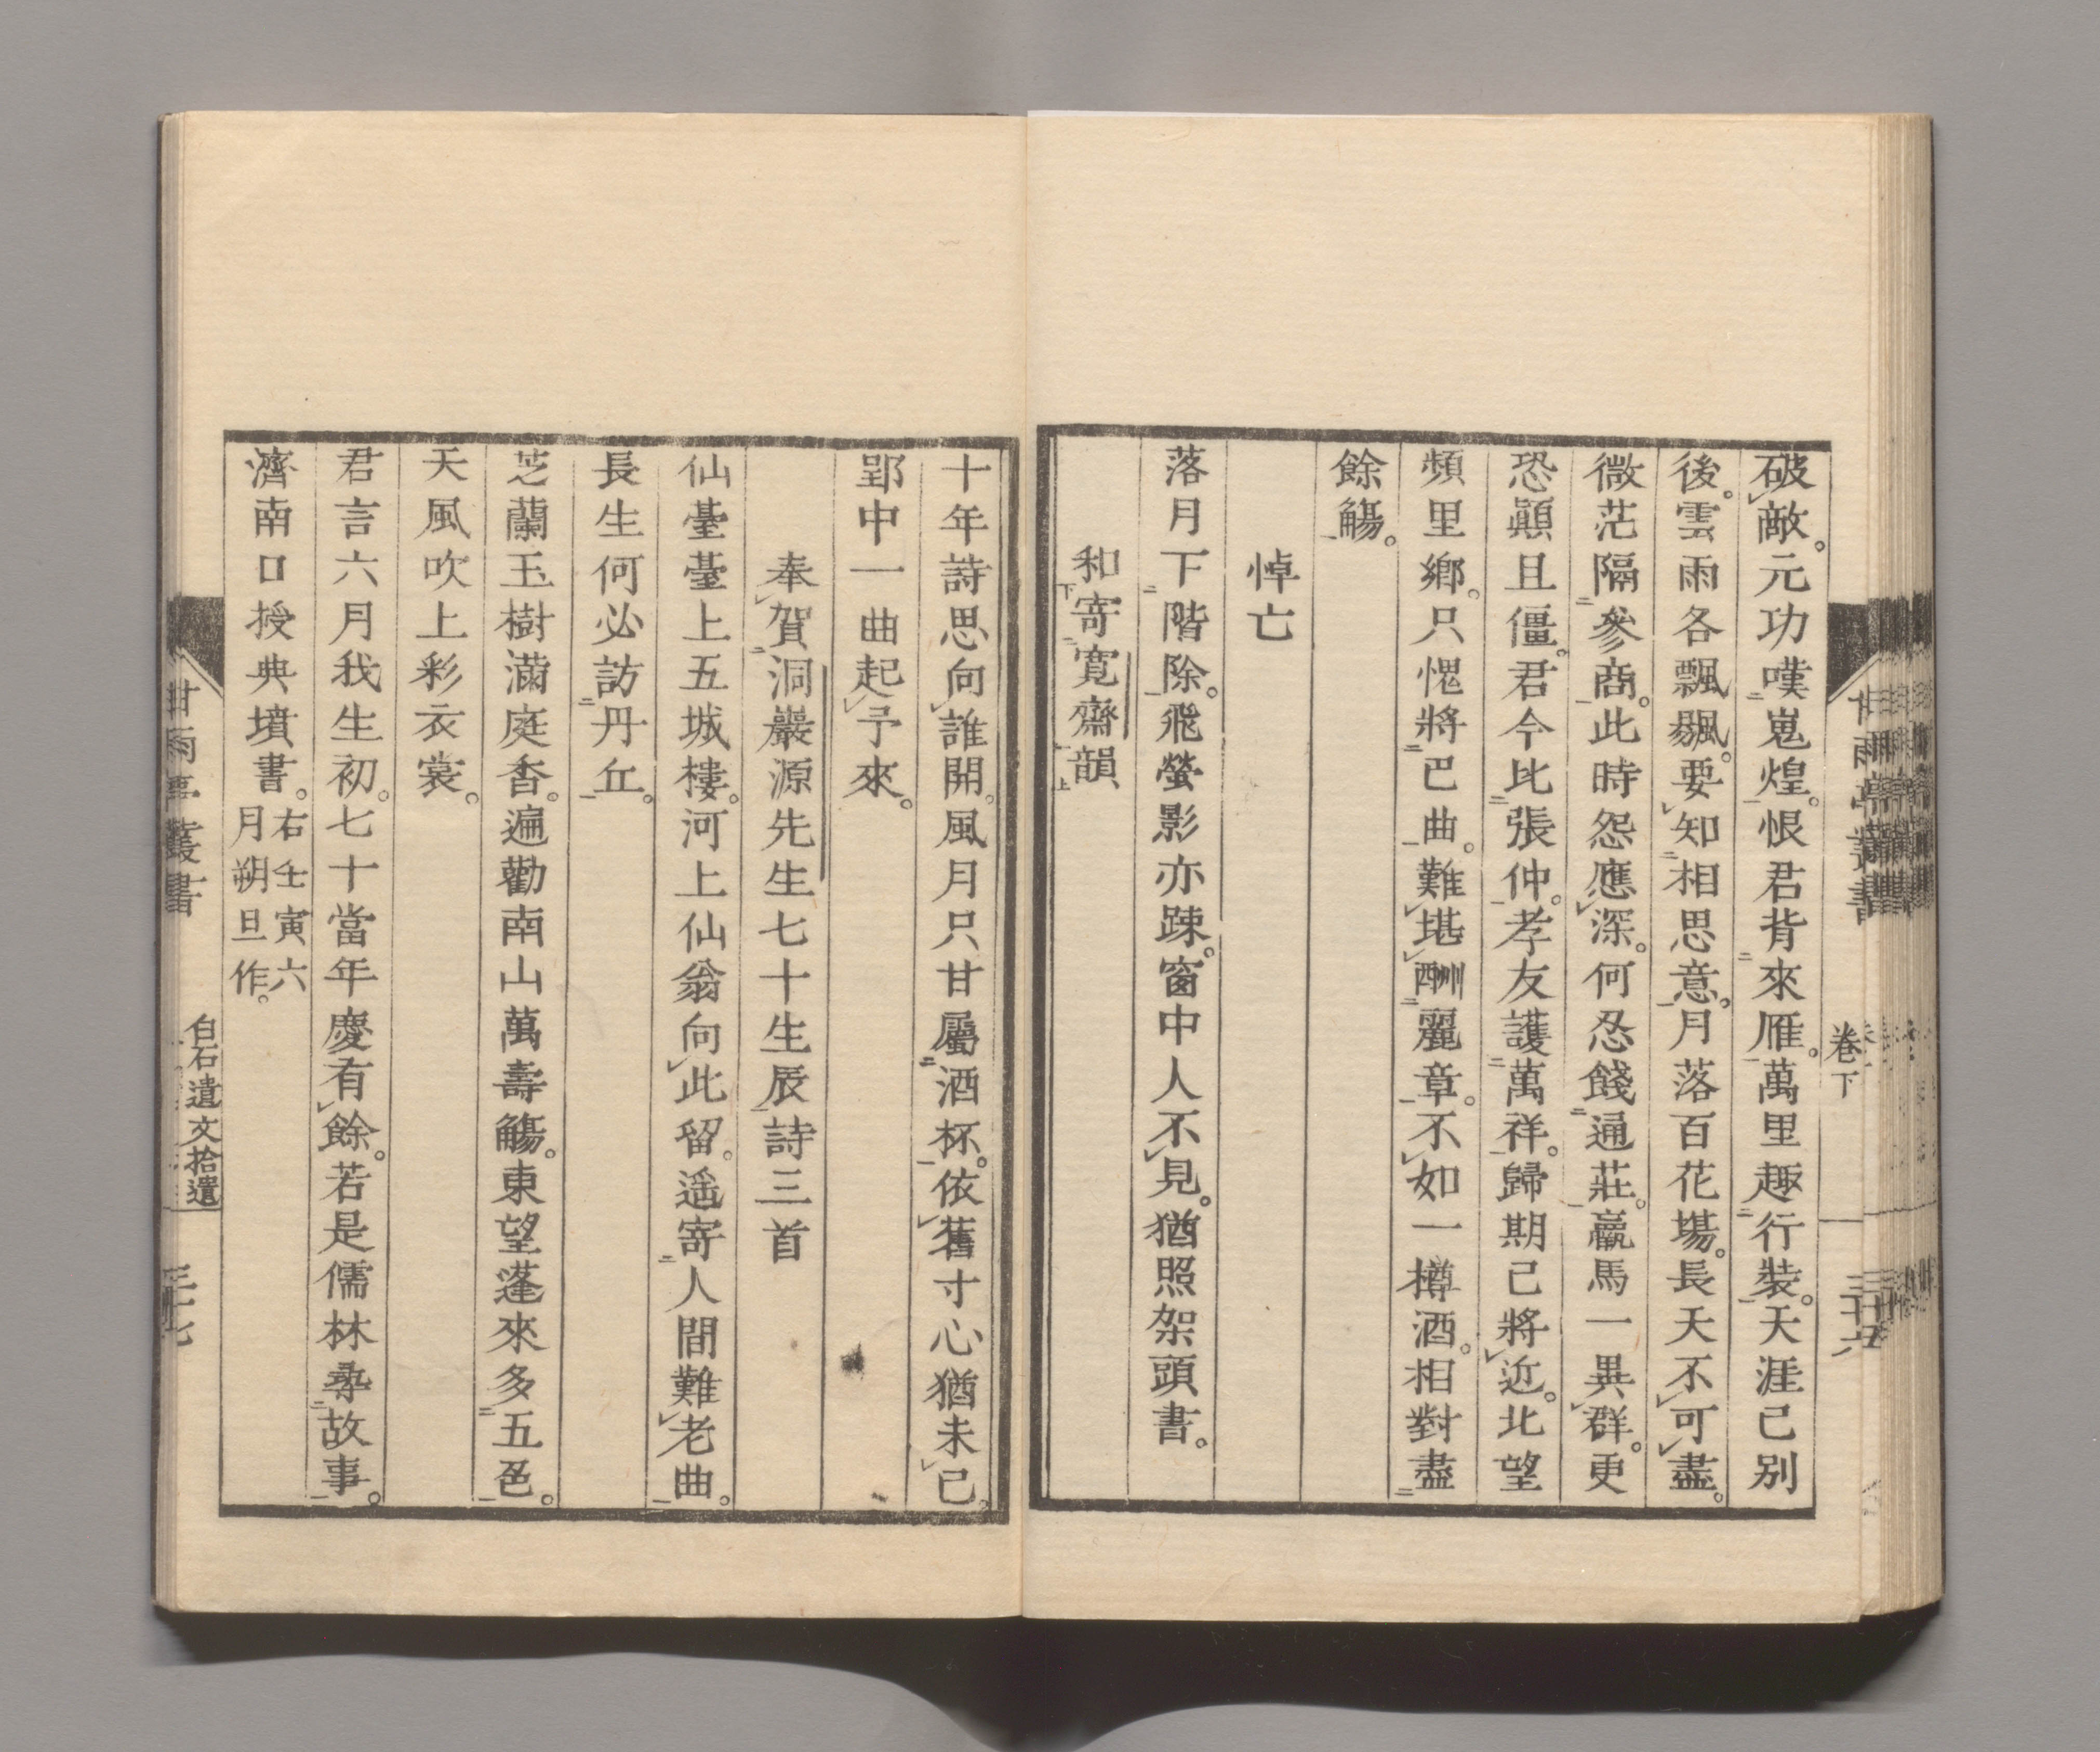 破敵。元功嘆嵬煌。恨君背來雁。萬里趣行裝。天涯已別
後。雲雨各飄颻。要知相思意。月落百花塲。長天不可盡。
微茫隔參商。此時怨應深。何忍餞通莊。羸馬一異群。更
恐顚且僵。君今比張仲。孝友護萬祥。歸期已將近。北望
頻里鄉。只愧將巴曲。難堪酬麗章。不如一樽酒。相對盡
餘觴。
悼亡
落月下階除。飛螢影亦疎。窗中人不見。猶照架頭書。
和寄寬齋韻
十年詩思向誰開。風月只甘屬酒杯。依舊寸心猶未已。
郢中一曲起予來。
奉賀洞巖源先生七十生辰詩三首
仙臺臺上五城樓。河上仙翁向此留。遥寄人間難老曲。
長生何必訪丹丘。
芝蘭玉樹滿庭香。遍勸南山萬壽觴。東望蓬來多五色。
天風吹上彩衣裳。
君言六月我生初。七十當年慶有餘。若是儒林尋故事。
濟南口授典墳書。右壬寅六
月朔旦作。
甘雨亭叢書
白石遺文拾遺
卷下